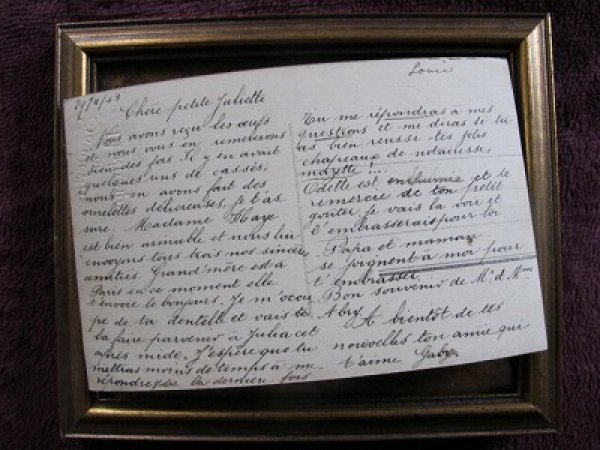 29/9/03
Chère petite Juliette
Nous avons reçu les œufs
et nous vous en remercions
bien des fas Il y en avait
quelques uns de cassés,
nous en avons fait des
omelettes délicieuses, je t'as
sure. Madame Haye
est bien aimable et nous lui
envoyons tous trois nos sincères
amitiés. Grand'mère est à
Paris en ce moment elle
t'envoie le bonjour. Je m'occu
pe de ta dentelle et vais te
la faire parvenir à Julia cet
après midi. J'espère que tu
mettras moins de temps à me
répondre que la dernière fois
Tu me répondras à mes
questions et me diras si tu
as bien réussi tes jolis
chapeaux de notairesse,
mazette!...
Odette est enrhumée et te
remercie de ton petit
goûter je vais la voir et
l'embrasserais pour toi
Papa et maman
se joignent à moi pour
t'embrasser
Bon souvenir de Mr. & Mme
Abry
A bientôt de tes
nouvelles ton amie qui
t'aime Gaby